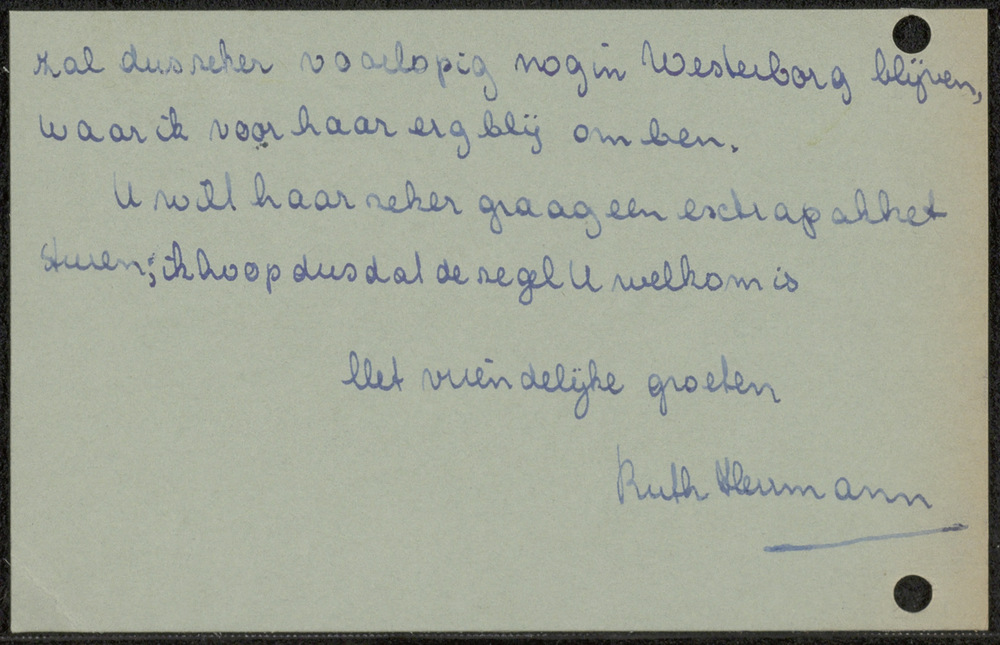 zal dus zeker voorlopig nog in Westerborg blijven,
waar ik voor haar erg blij om ben.
U will haar zeker graag een extra pakket
sturen; ik hoop dus dat de zegel U welkom is
Met vriendelijke groeten
Ruth Herrmann